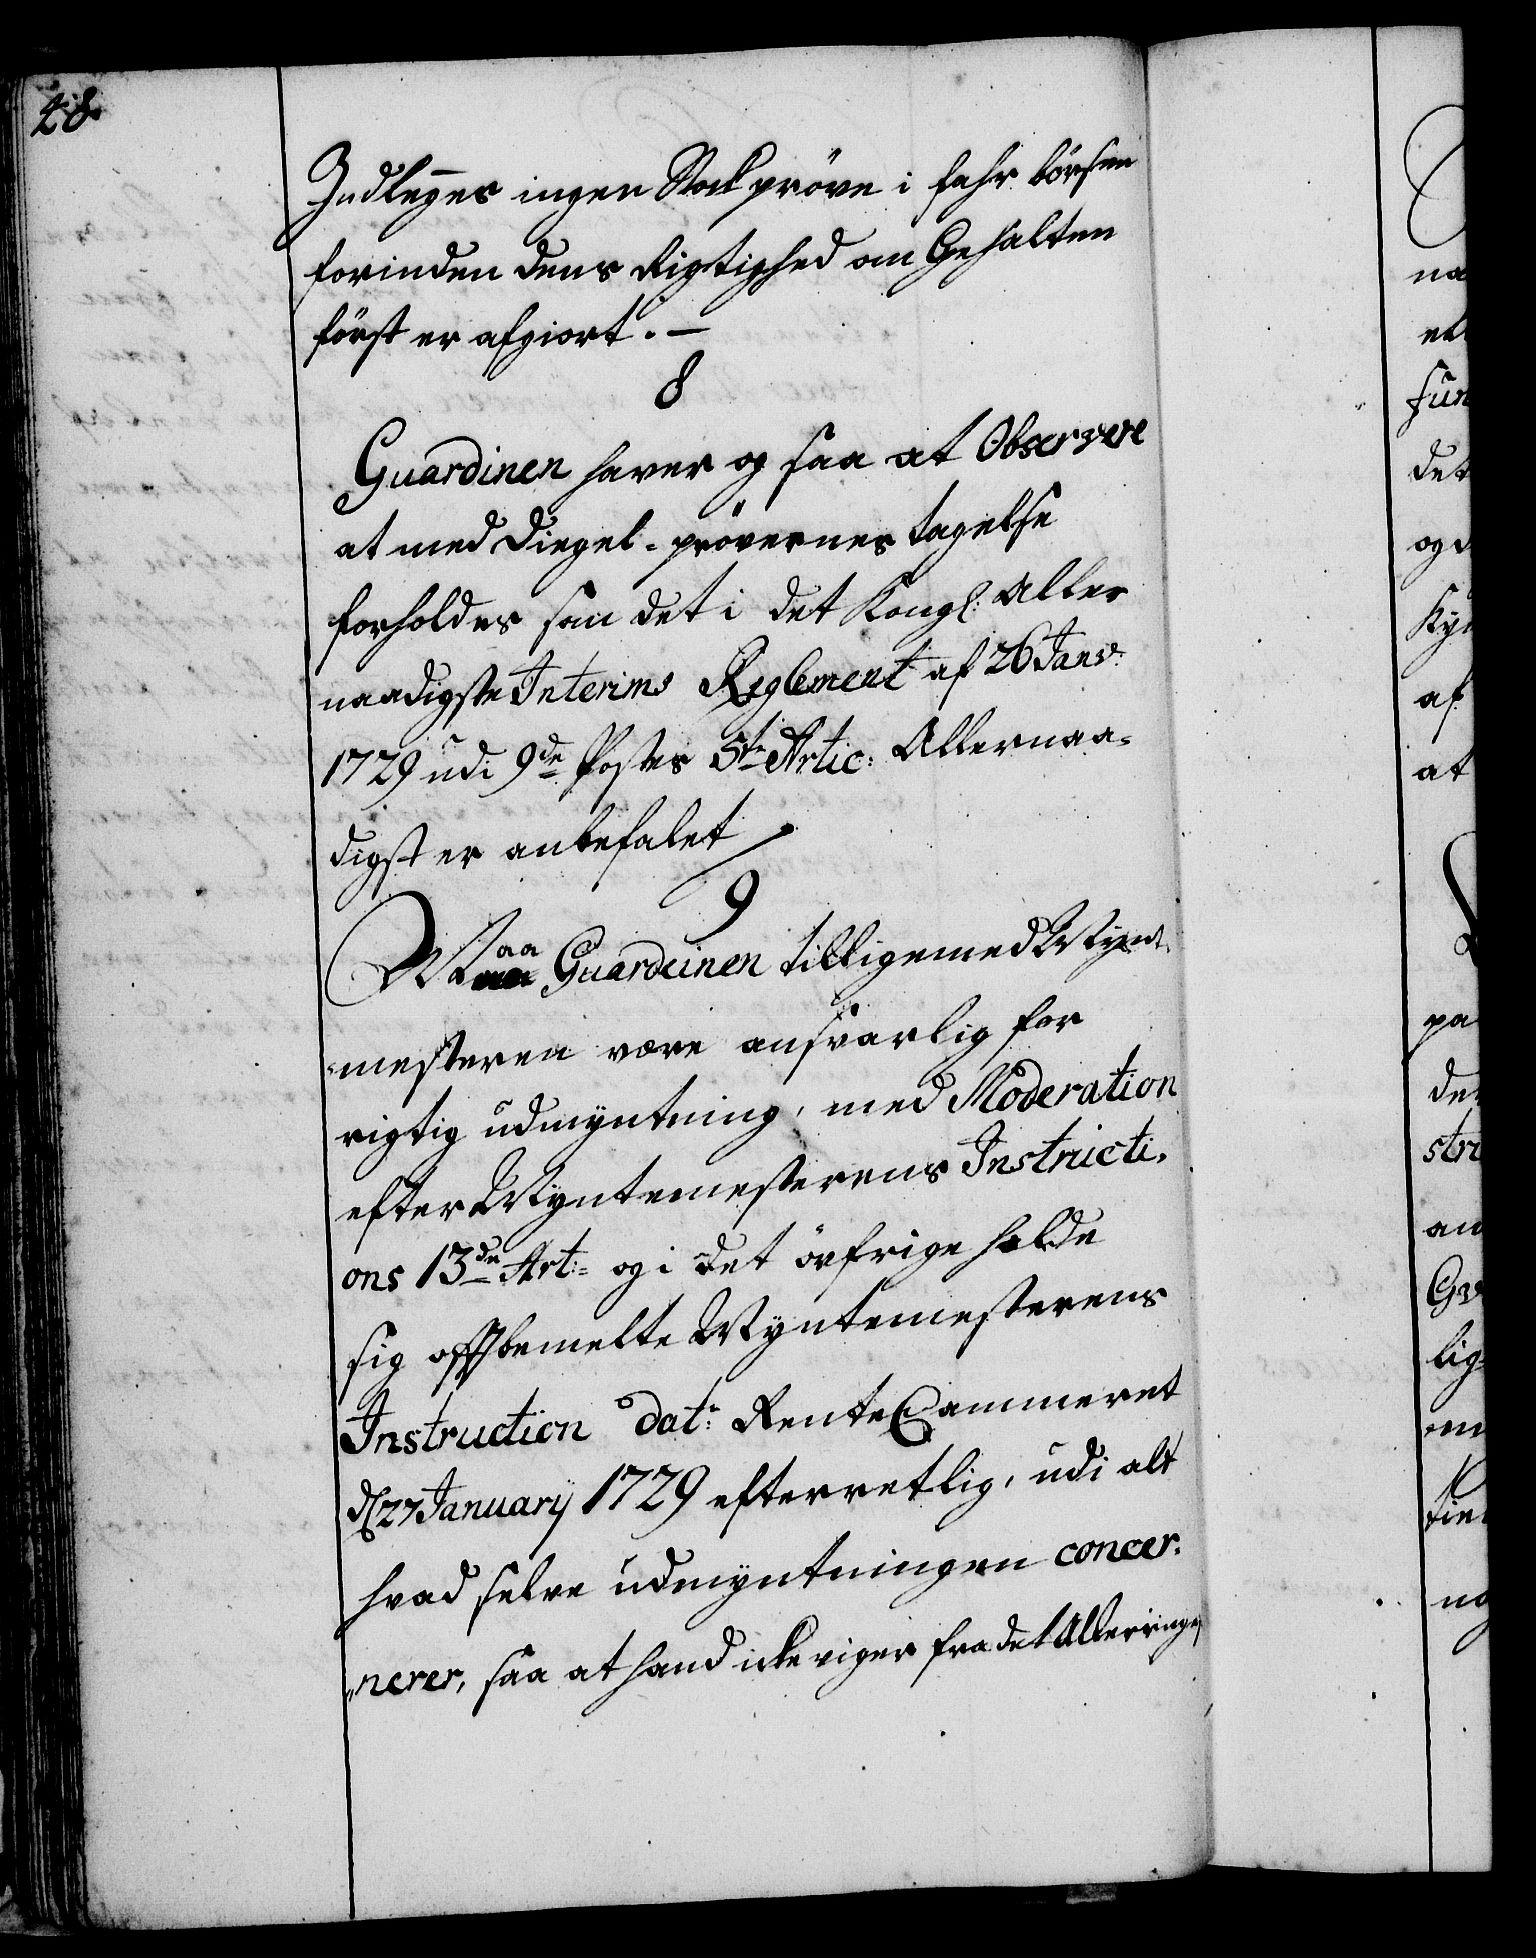 48.
Indlegges ingen Stockprøve i fahr börsen
forinden dens Rigtighed om Gehalten
först er afgiort. –
8
Guardinen haver og saa at Observere
at med Diegel-prøvernes tagelse
forholdes saa det i det Kongl: Aller
naadigste Interims Reglement af 26 Janv:
1729 udi 9de Postes 5te Artic: Allernaa-
digst er anbefalet /.
9
Maa Guardeinen tilligemed Mynt-
mesteren være ansvarlig for
rigtig udmyntning, med Moderation
efter Myntemesterens Instructi-
ons 13de Art:= og i det öufrige holde
sig offtbemelte Myntemesterens
Instruction dat: RenteCammeret
d 27 January 1729 efterretlig, udi alt
hvad selve udmyntningen concer-
nerer, saa at hand icke viger fra det Allerringe,
na
ell
fun
det
og
af
at
pa
der
stru
an
lig